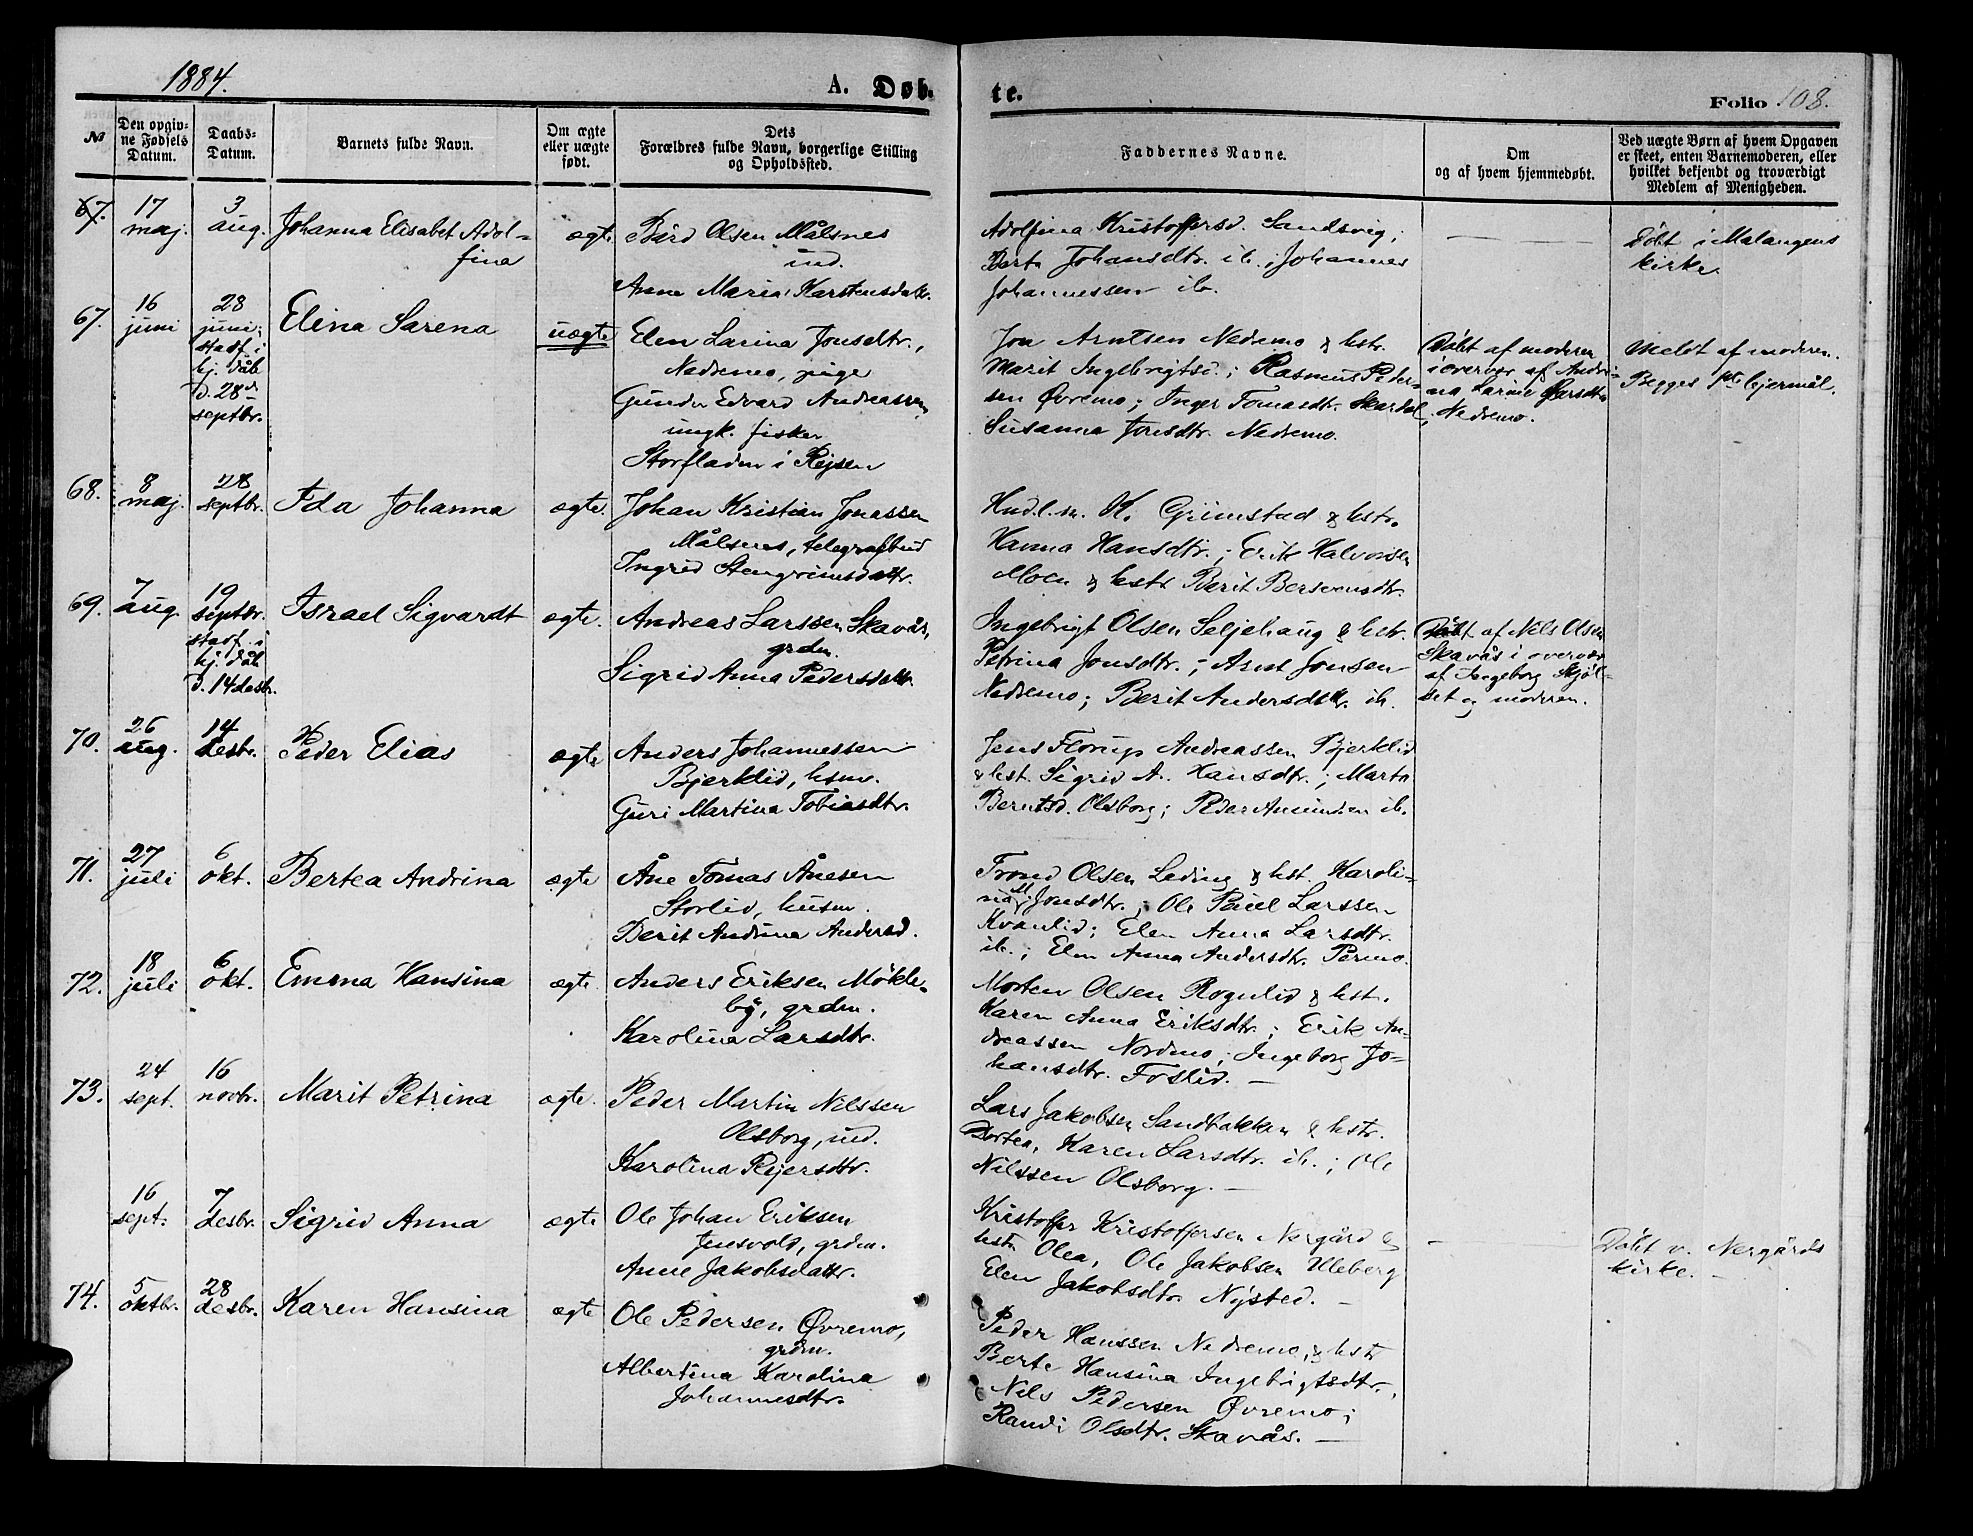 1884.
A. Døb-
te.
Folio 108.
No
Den opgiv-
ne Fødsels
Datum.
Daabs-
Datum.
Barnets fulde Navn.
Om ægte
eller uægte
født.
Dets
Forældres fulde Navn, borgerlige Stilling
og Opholdssted.
Faddernes Navne.
Om
og af hvem hjemmedøbt.
Ved uægte Børn af hvem Opgaven
er skeet, enten Barnemoderen, eller
hvilket bekjendt og troværdigt
Medlem af Menigheden.
67.
17
maj.
3
aug.
Johanna Elisabet Adol-
fina
ægte
Bård Olsen Målsnes
ind.
Anne Maria Karstensdatr.
Adolfina Kristoffersd. Sandsvig;
Berte Johansdtr. ib.; Johannes
Johannessen ib.
Døbt i Malangens
kirke.
67.
16
juni
28
juni;
stadf. i
hj. dåb
d. 28de
septbr.
Elina Sarena
uægte
Elen Larina Jonsdtr.,
Nedremo, pige
Gunder Edvard Andreassen
ungk. fisker
Storfladen i Rejsen
Jon Arntsen Nedremo & hstr.
Marit Ingebrigtsd.; Rasmus Peder-
sen Øvremo; Inger Tomasdtr. Skardal,
Susanna Jonsdtr. Nedremo.
Døbt af moderen
i overvær af Andri-
na Larine Larsdtr.
Nedremo.
Meldt af moderen.
Begges 1ste lejermål.
68.
8
maj.
28
septbr.
Ida Johanna
ægte.
Johan Kristian Jonassen
Målsnes, telegrafbud
Ingrid Stengrimsdattr.
Hndl.m. O. Grimstad & hstr.
Hanna Hansdtr.; Erik Halvorsen
Moen & hstr. Berit Bersvensdtr.
69.
7
aug.
19
septbr.
stadf. i
hj. dåb
d. 14 desbr.
Israel Sigvardt
ægte.
Andreas Larssen Skavås,
grdm.
Sigrid Anna Pedersdattr.
Ingebrigt Olsen Seljehaug & hstr.
Petrina Jonsdtr.; Arnt Jonsen
Nedremo; Berit Andersdattr. ib.
Døbt af Nils Olsen
Skavås i overvær
af Ingeborg Skjöl-
det og moderen.
70.
26
aug.
14
desbr.
Peder Elias
ægte
Anders Johannessen
Bjerklid, hsm.
Guri Martina Tobiasdtr.
Jens Florup Andreassen Bjerklid
& hst. Sigrid A. Hansdtr.; Marta
Berntsd. Olsborg; Peder Amundsen ib.
71.
27
juli
6
okt.
Bertea Andrina
ægte
Åne Tomas Ånesen
Storlid, husm.
Berit Andrina Andersd.
Trond Olsen Leding & hst. Karoli-
na M. Jonsdtr.; Ole Paul Larssen
Kvanlid; Elen Anna Larsdtr.
ib.; Elen Anna Andersdtr. Permo.
72.
18
juli
6
okt.
Emma Hansina
ægte.
Anders Eriksen Møkle-
by, grdm.
Karolina Larsdtr.
Morten Olsen Rognlid & hst.
Karen Anna Eriksdtr.; Erik An-
dreassen Nordmo; Ingeborg Jo-
hansdtr. Foslid.
73.
24
sept.
16
novbr.
Marit Petrina
ægte.
Peder Martin Nilssen
Olsborg, ind.
Karolina Rejersdtr.
Lars Jakobsen Sandbakken & hstr.
Dortea, Karen Larsdtr. ib.; Ole
Nilssen Olsborg.
16
sept.
7
desbr.
Sigrid Anna
ægte
Ole Johan Eriksen
Jensvold, grdm.
Anne Jakobsdattr.
Kristoffer Kristoffersen Nergård &
hstr. Olea, Ole Jakobsen Uleberg
Elen Jakobsdtr. Nysted.
Døbt v. Nergårds
kirke.
74.
5
oktbr.
28
desbr.
Karen Hansina
ægte
Ole Pedersen Øvremo,
grdm.
Albertina Karolina
Johannesdtr.
Peder Hanssen Nedremo, & hstr
Berte Hansina Ingebrigtsdtr.,
Nils Pedersen Øvremo;
Randi Olsdtr. Skavås.